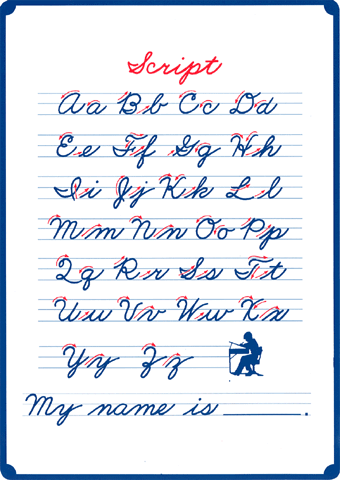 Script
Aa Bb Cc Dd
Ee Ff Gg Hh
Ii Jj Kk Ll
Mm Nn Oo Pp
Qq Rr Ss Tt
Uu Vv Ww Xx
Yy Zz
My name is ________.